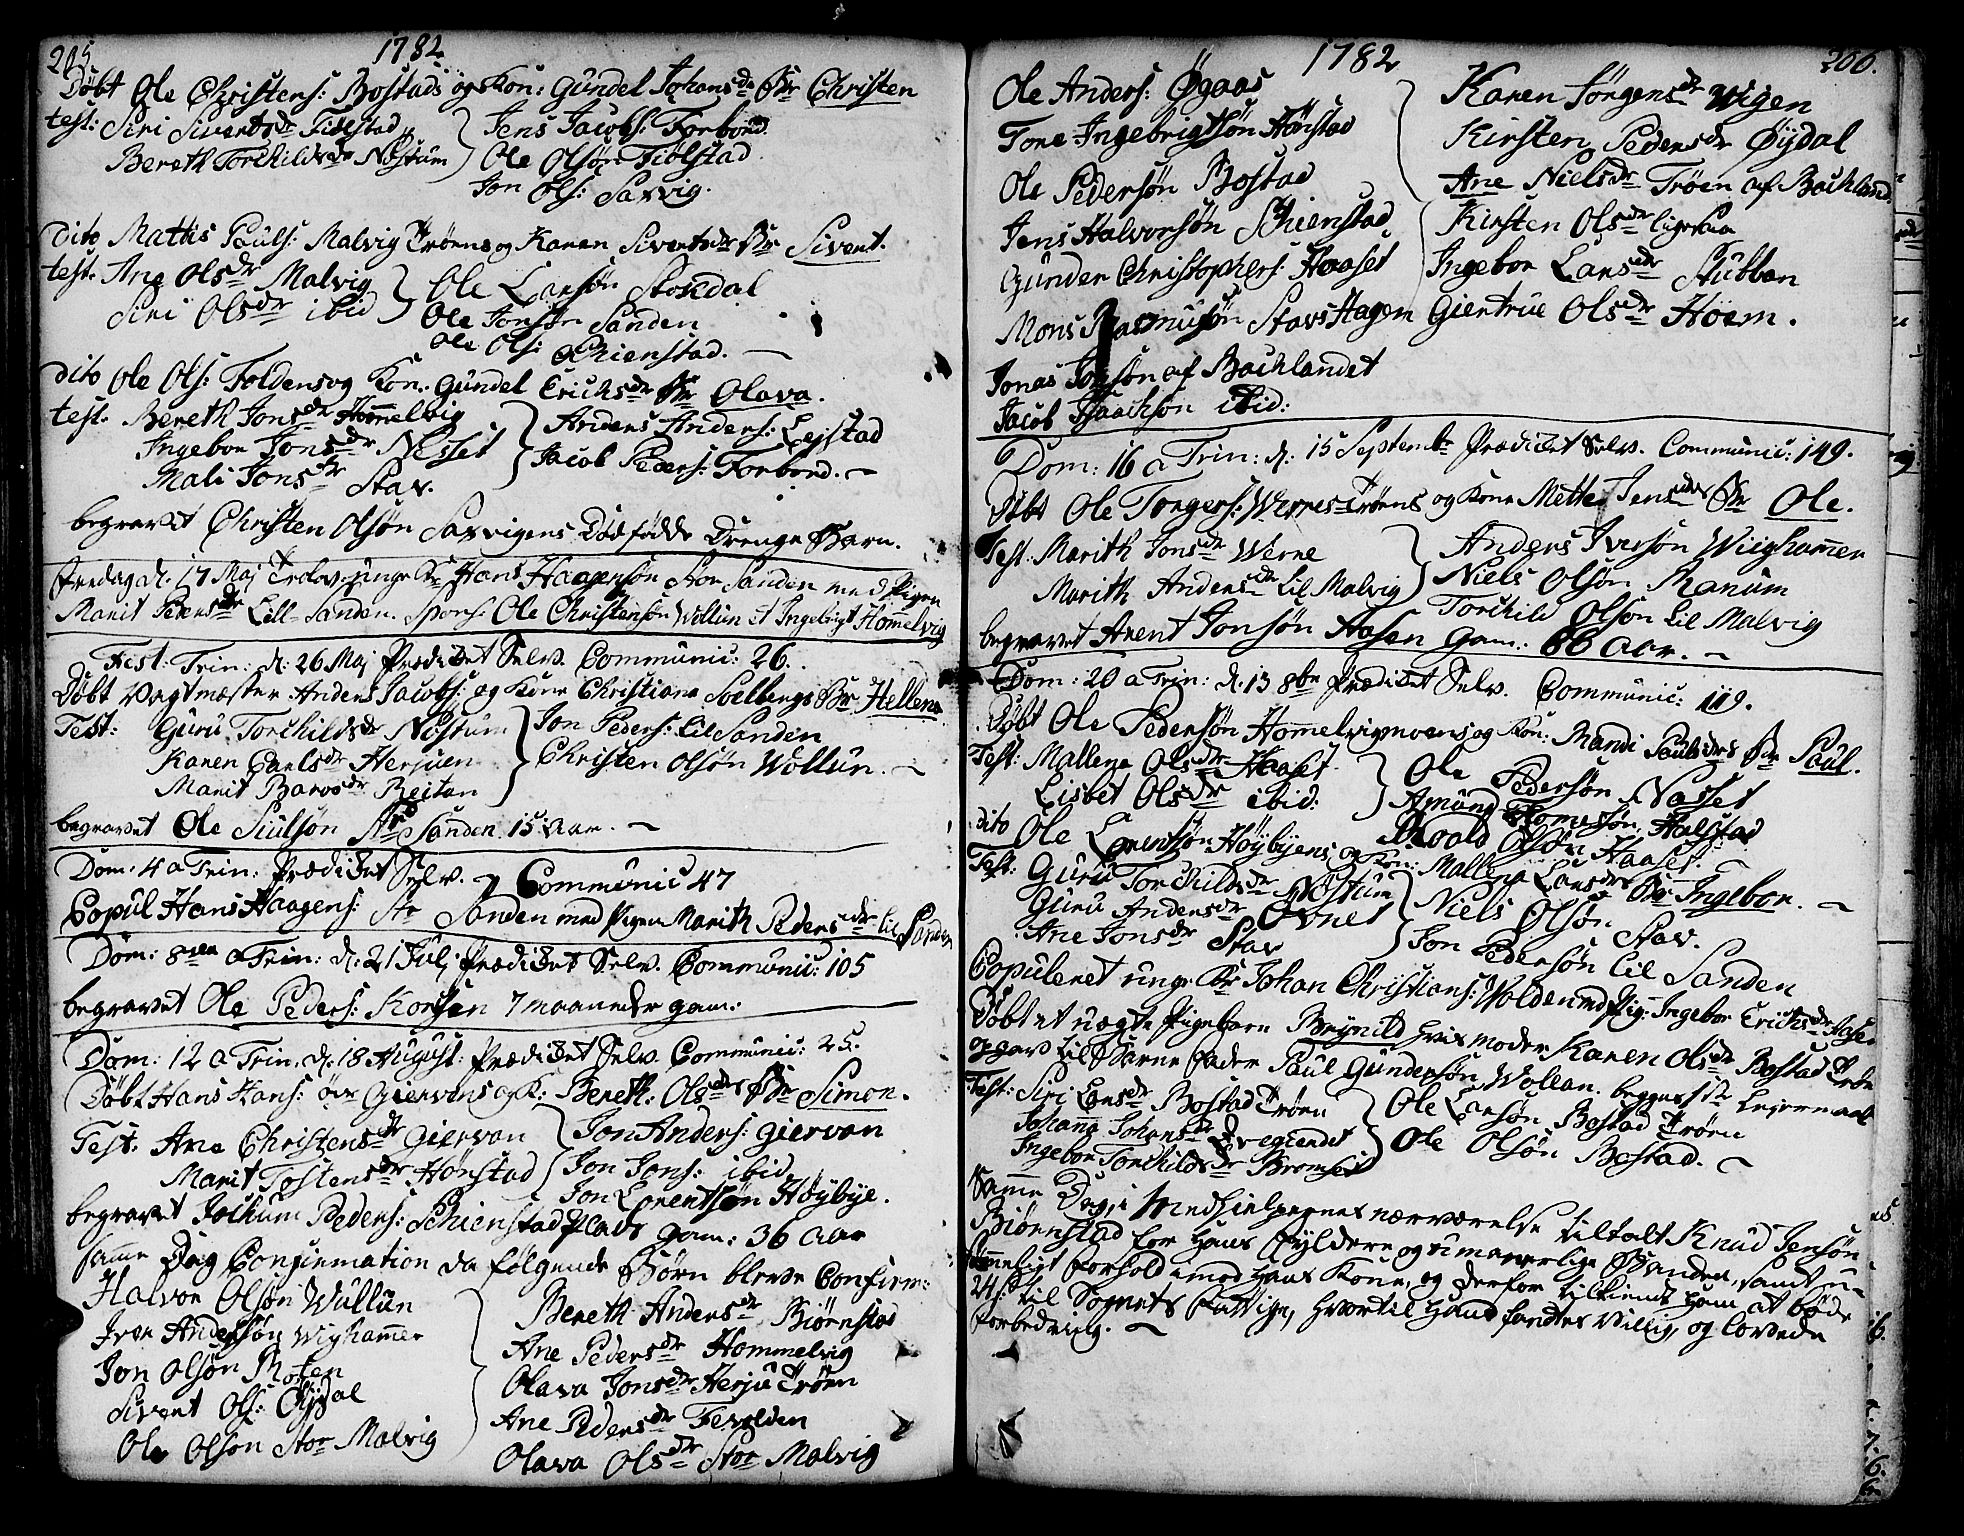 205 1782
Døbt Ole Christens: Bostads og Kon: Gundel Johansdr Br Christen
test: Siri Sivertsdr Fiolstad Jens Jacobs: Forbord
Bereth Torchildsdr Nøstum Ole Olsøn Fiolstad
Jon Ols: Saxvig.
Dito Mattis Pauls: Malvig Trøens og Karen Sivertsdr Br Sivert.
test. Ane Olsdr Malvig Ole Larsøn Stordal
Siri Olsdr ibid Ole Jonsøn Sanden
Ole Ols: Schienstad.
Dito Ole Ols: Foldens og Kon: Gundel Erichsdr Br Olava.
test. Bereth Jonsdr Hommelvig Anders Anders: Leistad
Ingebor Jonsdr Nesset Jacob Peders: Forbord.
Mali Jonsdr Stav.
begravet Christen Olsøn Saxvigens Dødfødde Drenge Barn.
Fredag d. 17 Maj Trolov: unge Kr Hans Haagensøn Stor Sanden med Pigen
Marit Pedersdr Lill-Sanden. Spons: Ole Christensøn Wullun et Ingebrigt Homelvig
Fest: Trin: d: 26 Maj Prædiket Selv. Communic: 26.
Døbt Vagtmæster Anders Jacobs: og Kone Christiana Soelbergs Br Hellena
Test: Guru Torchildsdr Nøstum Jon Peders: Lil Sanden
Karen Carlsdr Herjuen Christen Olsøn Wollun.
Marit Baroosdr Reitan
begravet Ole Siulsøn Str Sanden 15 Aar.
Dom: 4 a Trin: Prædiket Selv. Communic 47
Copul Hans Haagens: Str Sanden med Pigen Marith Pedersdr Lil Sanden
Dom: 8ven a Trin: d: 21 Julj Prædiket Selv. Communic: 105
begravet Ole Peders: Korsen 7 maaneder gam:
Dom: 12 a Trin. d. 18 August: Prædiket Selv. Communic: 25.
Døbt Hans Hans: øvr Giervens og K: Bereth: Olsdr Br Simon.
Test: Ane Christensdr Giervan Jon Anders: Giervan
Marit Tostensdr Hønstad Jon Jons: ibid
Jon Lorentsøn Høybye.
begravet Jochum Peders: Schienstad Plads gam: 36 Aar
samme Dag Confirmation da følgende Børn bleve Confirm:
Halvor Olsøn Wullun Bereth Andersdr Biørnstad
Iver Andersøn Wighammer Ane Pedersdr Hommelvig
Jon Olsøn Moten Olava Jonsdr Herju Trøen
Sivert Ols: Øydal Ane Pedersdr Fevolden
Ole Olsøn Stor Malvig Olava Olsdr Stor Malvig
1782 206.
Ole Anders: Øgaas Karen Jørgensdr Wigen
Tore Ingebrigtsøn Hønstad Kirsten Pedersdr Øydal
Ole Pedersøn Bostad Ane Nielsdr Trøen af Bachland
Jens Halvorsøn Schienstad Kirsten Olsdr ligesaa
Gunder Christophers: Haaset Ingebor Larsdr Stubban
Mons Rasmusøn Stavs Hagen Giertrue Olsdr Høem.
Jonas Jonsøn af Bachlandet
Jacob Isaachsøn ibid:
Dom: 16 a Trin: d: 15 Septembr Prædiket Selv. Communic: 149.
Døbt Ole Torgers: Wernes Trøens og Kone Mette Jensdr Br Ole.
Test: Marith Jonsdr Werne Anders Iversøn Wiighammer
Marith Andersdr Lil Malvig Niels Olsøn Ranum
Torchild Olsøn Lil Malvig
begravet Arent Jonsøn Aasen Gam: 86 Aar.
Dom: 20 a Trin: d. 13 8br Prædiket Selv. Communic: 119.
Døbt Ole Pedersøn Homelvigmoens og Kon: Mandi Paulsdr Br Paul.
Test: Mallena Olsdr Haaset Ole Pedersøn Nasset
Lisbet Olsdr ibid: Amund Tomesøn Halstad
Roald Olsøn Haaset.
Dito Ole Lorentsøn Høybyens og Kon: Mallena Larsdr Br Ingebor.
Test: Guru Torchildsdr Nøstum Niels Olsøn Stav.
Guru Andersdr Ovnet Jon Pedersøn Lil Sanden
Ane Jonsdr Stav
Copuleret unge Kr Johan Christians: Wolden med Pig: Ingebor Erichsdr Aasen
Døbt et uægte Pigebarn Brynild hvis Moder Karen Olsdr Bostad Trøe
og gav til Barnefader Paul Gundersøn Wollan. begges 1ste Leiermaal
Test: Siri Larsdr Bostad Trøen Ole Larsøn Bostad Trøen
Johana Johansdr Ole Olsøn Bostad.
Ingebor Torchildsdr Bromset
Samme Dag, i Medhielpernes nærværelse tiltalt Knud Jensøn
Biørnstad for hans fylderie og umanerlige Banden, samt u-
sømmeligt Forhold imod hans Kone, og derfor tilkiendt ham at bøde
24 s: til Sognets Fattige, hvortil hand fandtes villig, og lovede
Forbedring.